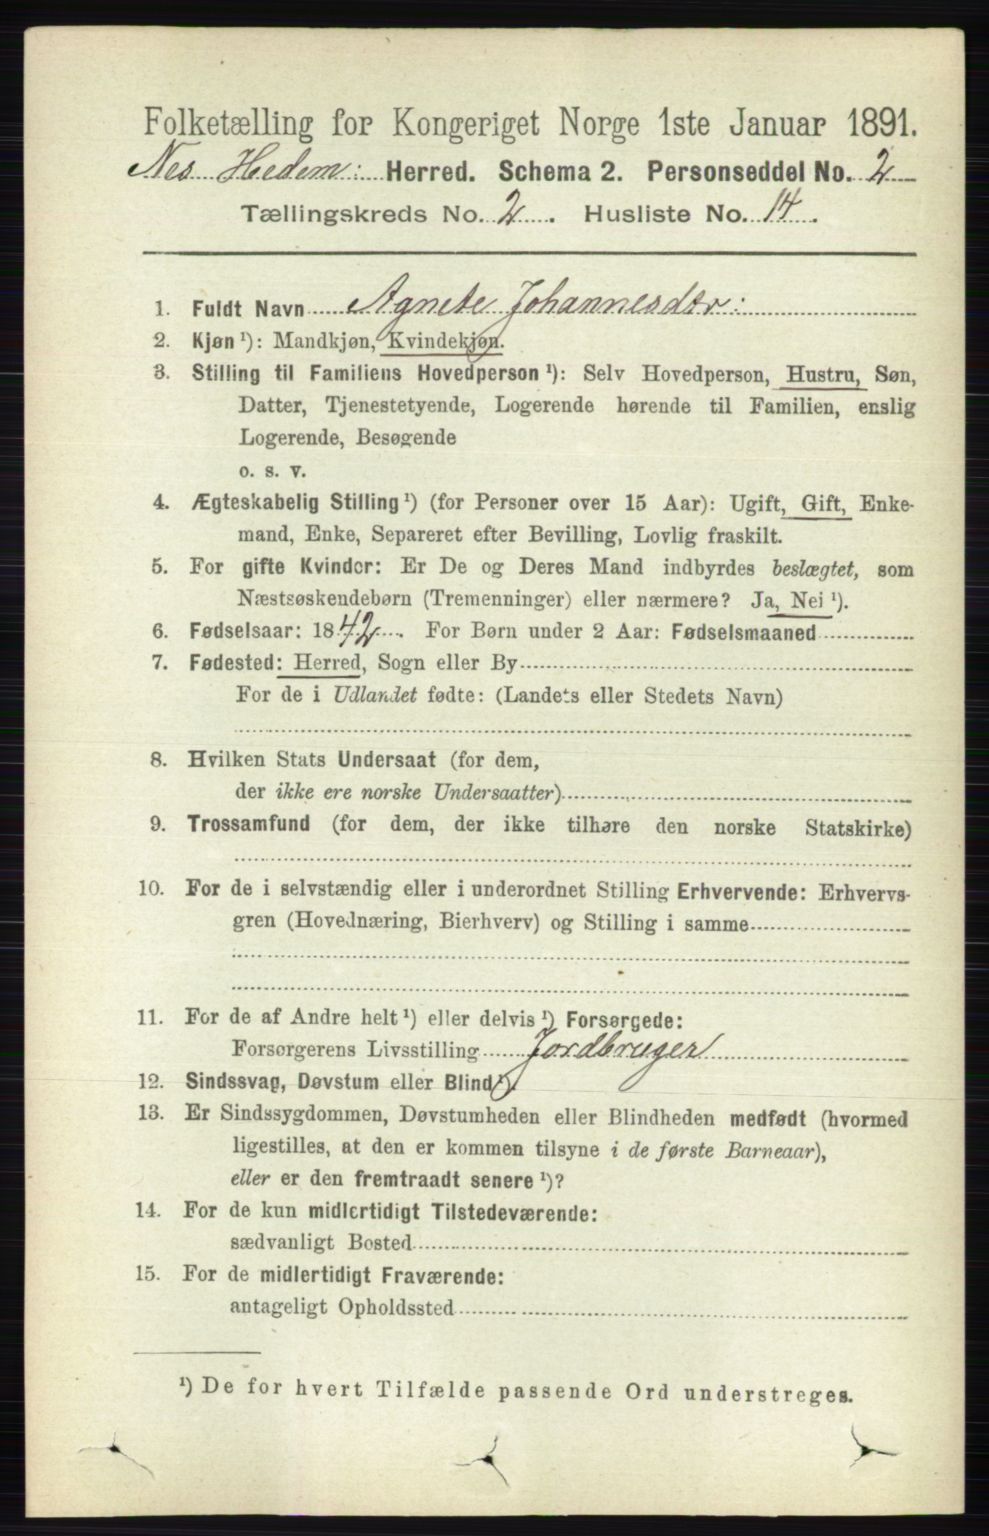 Folketælling for Kongeriget Norge 1ste Januar 1891.
Nes Hedem: Herred. Schema 2. Personseddel No. 2
Tællingskreds No. 2. Husliste No. 14.
1. Fuldt Navn Agnete Johannesdtr:
2. Kjøn ¹): Mandkjøn, Kvindekjøn.
3. Stilling til Familiens Hovedperson ¹): Selv Hovedperson, Hustru, Søn,
Datter, Tjenestetyende, Logerende hørende til Familien, enslig
Logerende, Besøgende
o. s. v.
4. Ægteskabelig Stilling ¹) (for Personer over 15 Aar): Ugift, Gift, Enke-
mand, Enke, Separeret efter Bevilling, Lovlig fraskilt.
5. For gifte Kvinder: Er De og Deres Mand indbyrdes beslægtet, som
Næstsøskendebørn (Tremenninger) eller nærmere? Ja, Nei ¹).
6. Fødselsaar: 1842. For Børn under 2 Aar: Fødselsmaaned
7. Fødested: Herred, Sogn eller By
For de i Udlandet fødte: (Landets eller Stedets Navn)
8. Hvilken Stats Undersaat (for dem,
der ikke ere norske Undersaatter)
9. Trossamfund (for dem, der ikke tilhøre den norske Statskirke)
10. For de i selvstændig eller i underordnet Stilling Erhvervende: Erhvervs-
gren (Hovednæring, Bierhverv) og Stilling i samme
11. For de af Andre helt ¹) eller delvis ¹) Forsørgede:
Forsørgerens Livsstilling Jordbruger
12. Sindssvag, Døvstum eller Blind ¹).
13. Er Sindssygdommen, Døvstumheden eller Blindheden medfødt (hvormed
ligestilles, at den er kommen tilsyne i de første Barneaar),
eller er den fremtraadt senere ¹)?
14. For de kun midlertidigt Tilstedeværende:
sædvanligt Bosted
15. For de midlertidigt Fraværende:
antageligt Opholdssted
¹) De for hvert Tilfælde passende Ord understreges.